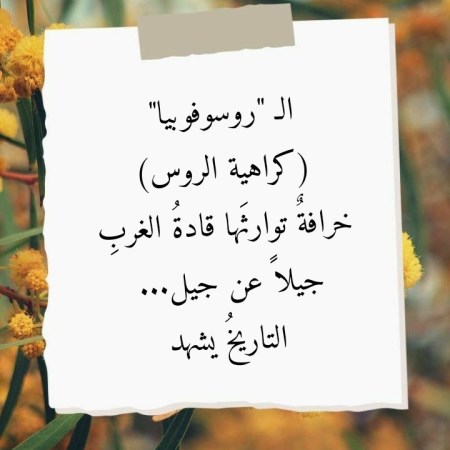 الـ "روسوفوبيا"
(كراهية الروس)
خرافةٌ توارثَها قادةُ الغربِ
جيلاً عن جيل...
التاريخُ يشهد